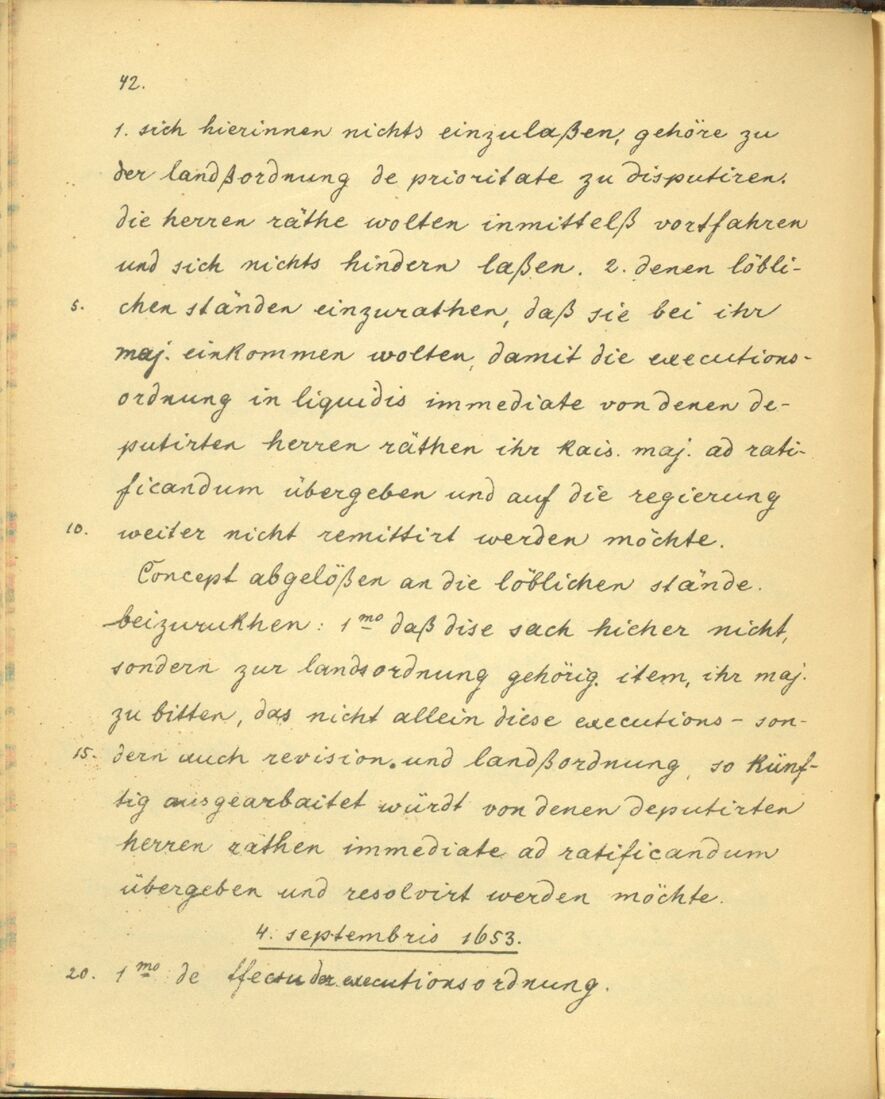 42.
1. sich hierinnen nichts einzulaßen, gehöre zu
der landßordnung de prioritate zu disputiren.
die herren räthe wolten inmittelß vortfahren
und sich nichts hindern laßen. 2. denen löbli-
5. chen ständen einzurathen, daß sie bei ihr
maj. einkommen wolten, damit die executions-
ordnung in liquidis immediate von denen de-
putirten herren räthen ihr kais. maj. ad rati-
ficandum übergeben und auf die regierung
10. weiter nicht remittirt werden möchte.
Concept abgelößen an die löblichen stände.
beizurukhen: 1mo daß dise sach hieher nicht,
sondern zur landsordnung gehörig. item, ihr maj.
zu bitten, das nicht allein diese executions- son-
15. dern auch revision. und landßordnung, so künf-
tig ausgearbaitet würdt von denen deputirten
herren räthen immediate ad ratificandum
übergeben und resolvirt werden möchte.
4. septembris 1653.
20. 1mo de der executionsordnung.